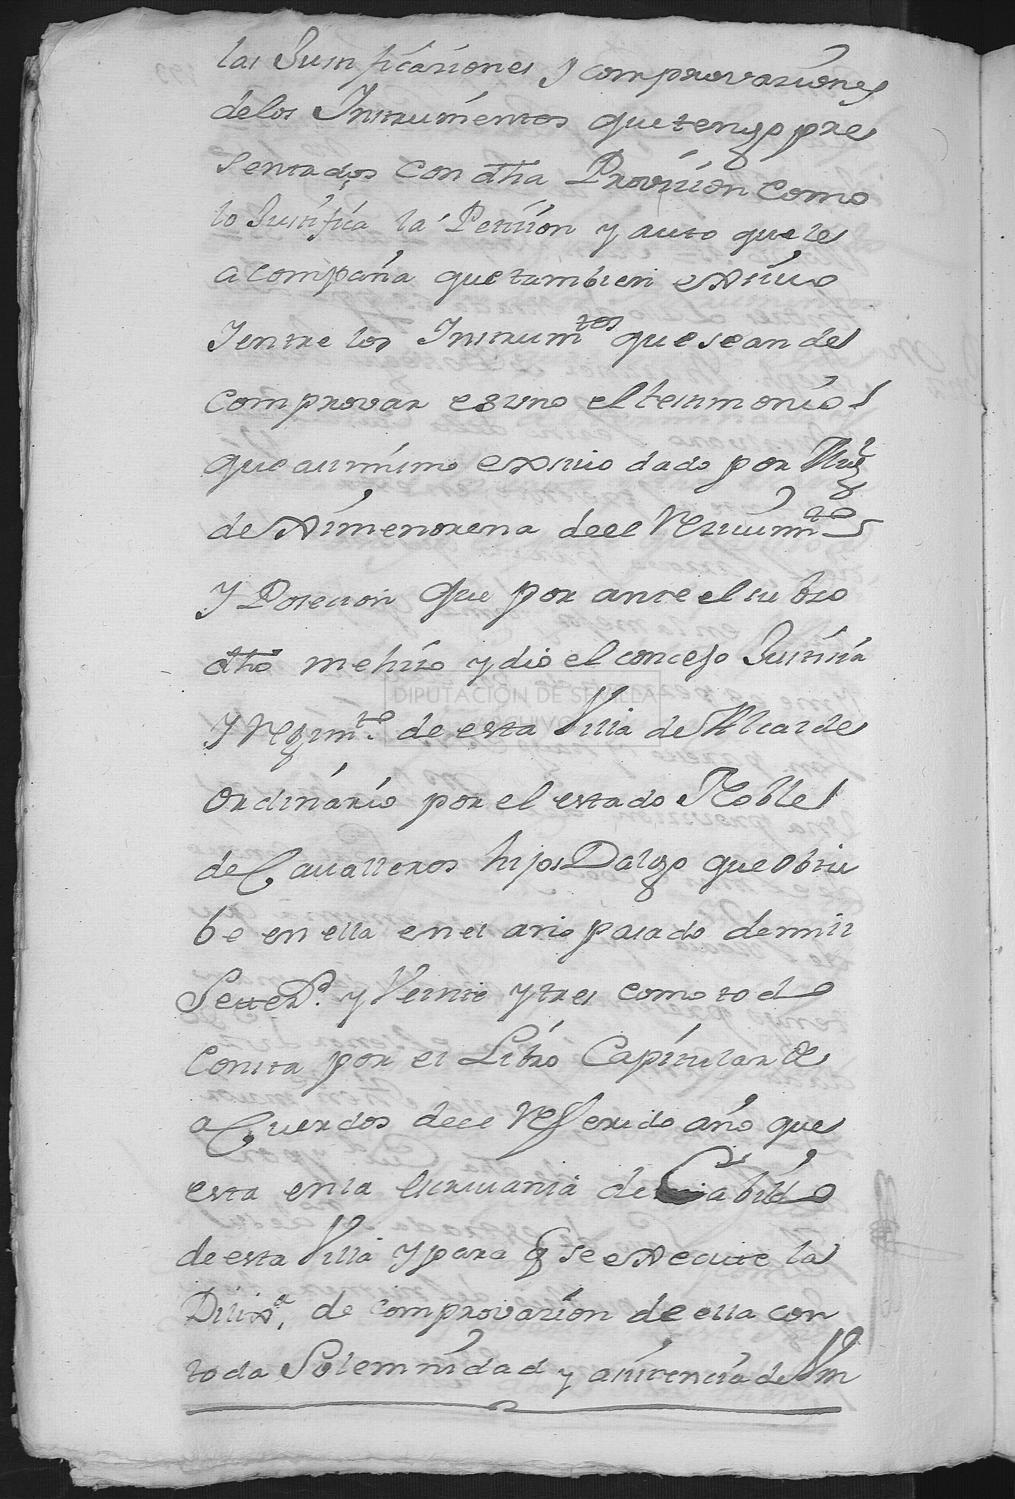 las Justificaziones y comprovaziones
de los Instrumentos que tengo pre
sentados con dha Provision como
lo Justifica la Petizion y auto que le
acompaña que tambien exsivo
Y entre los Instrumtos que se an de
comprovar es uno el testimonio
que asimismo exsivo dado por
de Ximenorena de el Rezivimto
y Posecion que por ante el su bzo
dho me hizo y dio el concejo Justizia
y Regimto de esta Villa de Alcalde
ordinario por el estado Noble
de Cavalleros hijos Dalgo que obtu
be en ella en el año pasado de mil
Settezs y Veinte y tres como todo
consta por el Libro Capitular de
aCuerdos de el Refferido año que
esta en la escrivania de Cabildo
de esta Villa y para q se execute la
Diliza de comprovazion de ella con
toda Solemnidad y asistencia de Vm
DIPUTACIÓN DE SEVILLA
ARCHIVO